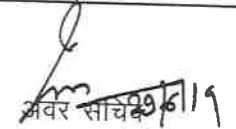 अवर सचिव 29/6/19